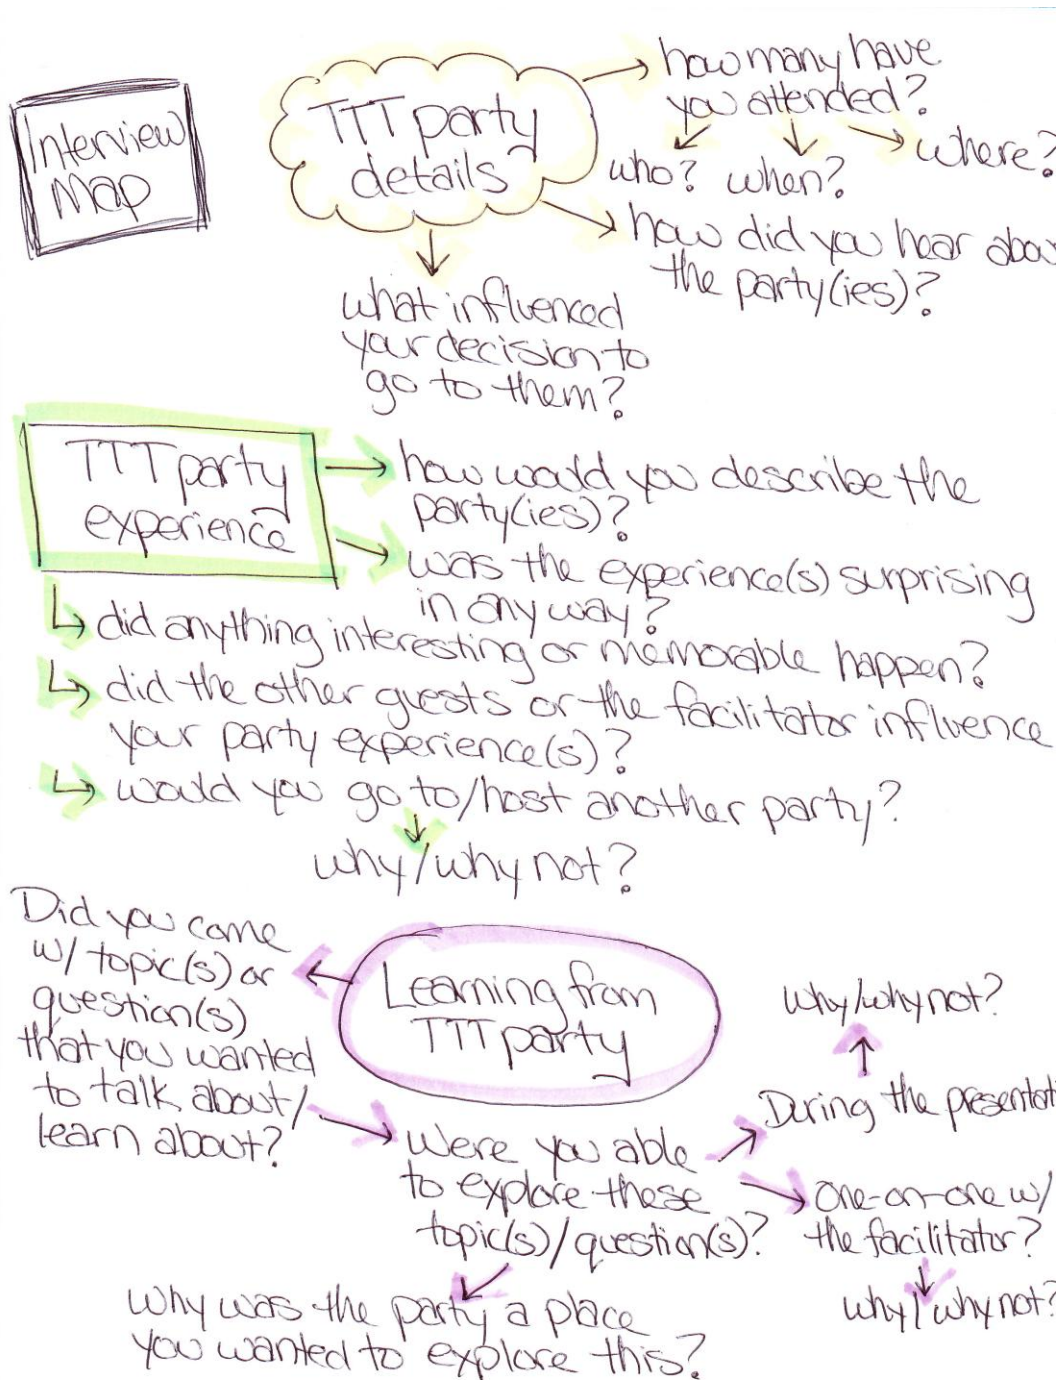 Interview
Map
TTT party
details
how many have
you attended?
who?
when?
where?
how did you hear abou
the party(ies)?
what influenced
your decision to
go to them?
TTT party
experience
how would you describe the
party(ies)?
was the experience(s) surprising
in any way?
did anything interesting or memorable happen?
did the other guests or the facilitator influence
your party experience(s)?
would you go to/host another party?
why/why not?
Learning from
TTT party
Did you come
w/ topic(s) or
question(s)
that you wanted
to talk about/
learn about?
were you able
to explore these
topic(s)/question(s)?
During the presentati
why/why not?
one-on-one w/
the facilitator?
why/why not?
why was the party a place
you wanted to explore this?